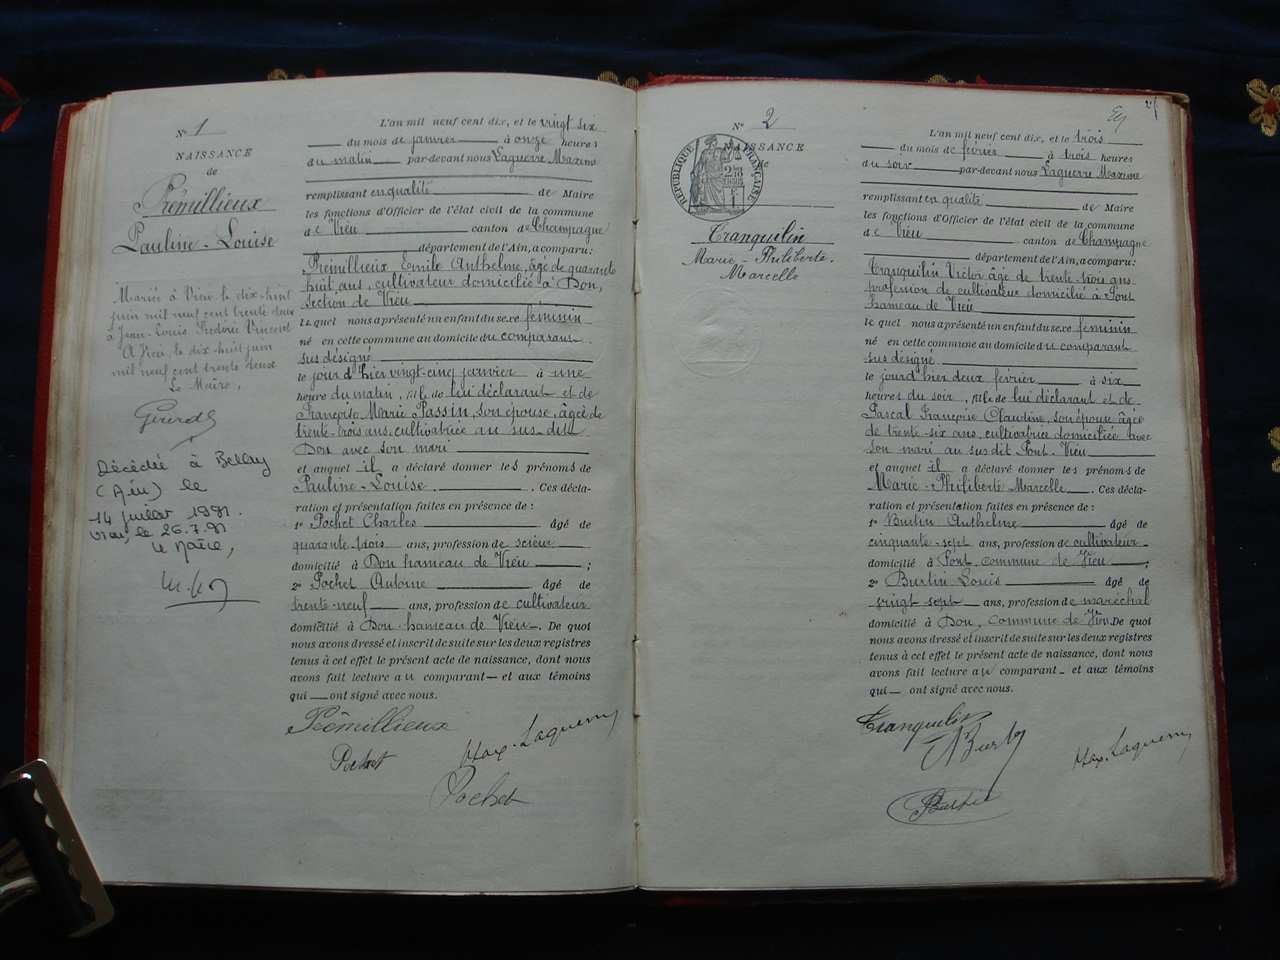 N° 1
NAISSANCE
de
Prémillieux
Pauline-Louise
Mariée à Vieu le dix-huit
juin mil neuf cent trente deux
à Jean-Louis Frédéric Vincent
A Vieu, le dix-huit juin
mil neuf cent trente deux
Le Maire,
Décédée à Belley
(Ain) le
14 juillet 1991.
Vieu, le 26.7.91
Le Maire,
L'an mil neuf cent dix, et le vingt six
du mois de janvier à onze heures
du matin par-devant nous Laguerre Maxime
remplissant en qualité de Maire
les fonctions d'Officier de l'état civil de la commune
de Vieu canton de Champagne
département de l'Ain, a comparu:
Prémillieux Emile Anthelme, âgé de quarante
huit ans, cultivateur domicilié à Don,
section de Vieu
lequel nous a présenté un enfant du sexe féminin
né en cette commune au domicile du comparant
sus désigné
le jour d'hier vingt-cinq janvier à une
heure du matin, fille de lui déclarant et de
Françoise Marie Passin, son épouse, âgée de
trente-trois ans, cultivatrice au sus-dit
Don avec son mari
et auquel il a déclaré donner les prénoms de
Pauline-Louise. Ces décla-
ration et présentation faites en présence de:
1° Pochet Charles âgé de
quarante-trois ans, profession de scieur
domicilié à Don hameau de Vieu;
2° Pochet Antoine âgé de
trente-neuf ans, profession de cultivateur
domicilié à Don hameau de Vieu. De quoi
nous avons dressé et inscrit de suite sur les deux registres
tenus à cet effet le présent acte de naissance, dont nous
avons fait lecture au comparant et aux témoins
qui ont signé avec nous.
Prémillieux
Pochet Max. Laguerre
Pochet
N° 2
NAISSANCE
de
RÉPUBLIQUE FRANÇAISE
Tranquilin
Marie-Philiberte-
Marcelle
L'an mil neuf cent dix, et le trois
du mois de février à trois heures
du soir par-devant nous Laguerre Maxime
remplissant en qualité de Maire
les fonctions d'Officier de l'état civil de la commune
de Vieu canton de Champagne
département de l'Ain, a comparu:
Tranquilin Victor âgé de trente-trois ans
profession de cultivateur domicilié à Pont
hameau de Vieu
lequel nous a présenté un enfant du sexe féminin
né en cette commune au domicile du comparant
sus désigné
le jour d'hier deux février à six
heures du soir, fille de lui déclarant et de
Pascal Françoise Claudine, son épouse âgée
de trente-six ans, cultivatrice domiciliée avec
son mari au susdit Pont-Vieu
et auquel il a déclaré donner les prénoms de
Marie-Philiberte Marcelle. Ces décla-
ration et présentation faites en présence de:
1° Burtin Anthelme âgé de
cinquante-sept ans, profession de cultivateur
domicilié à Pont, commune de Vieu;
2° Burtin Louis âgé de
vingt sept ans, profession de maréchal
domicilié à Don, Commune de Vieu. De quoi
nous avons dressé et inscrit de suite sur les deux registres
tenus à cet effet le présent acte de naissance, dont nous
avons fait lecture au comparant et aux témoins
qui ont signé avec nous.
Tranquilin
Burtin
Max. Laguerre
Burtin